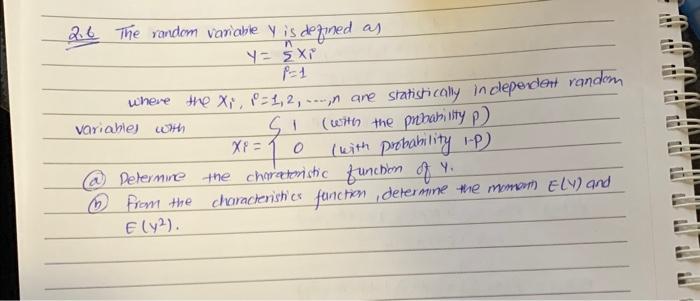 2.6 The random variable Y is defined as
n
Y = Σ Xi
i=1
where the Xi, i=1,2,----,n are statistically independent random
variables with { 1 (with the probability p)
Xi = { 0 (with probability 1-p)
(a) Determine the charateristic function of Y.
(b) From the characteristics function, determine the moments E(Y) and
E(y²).